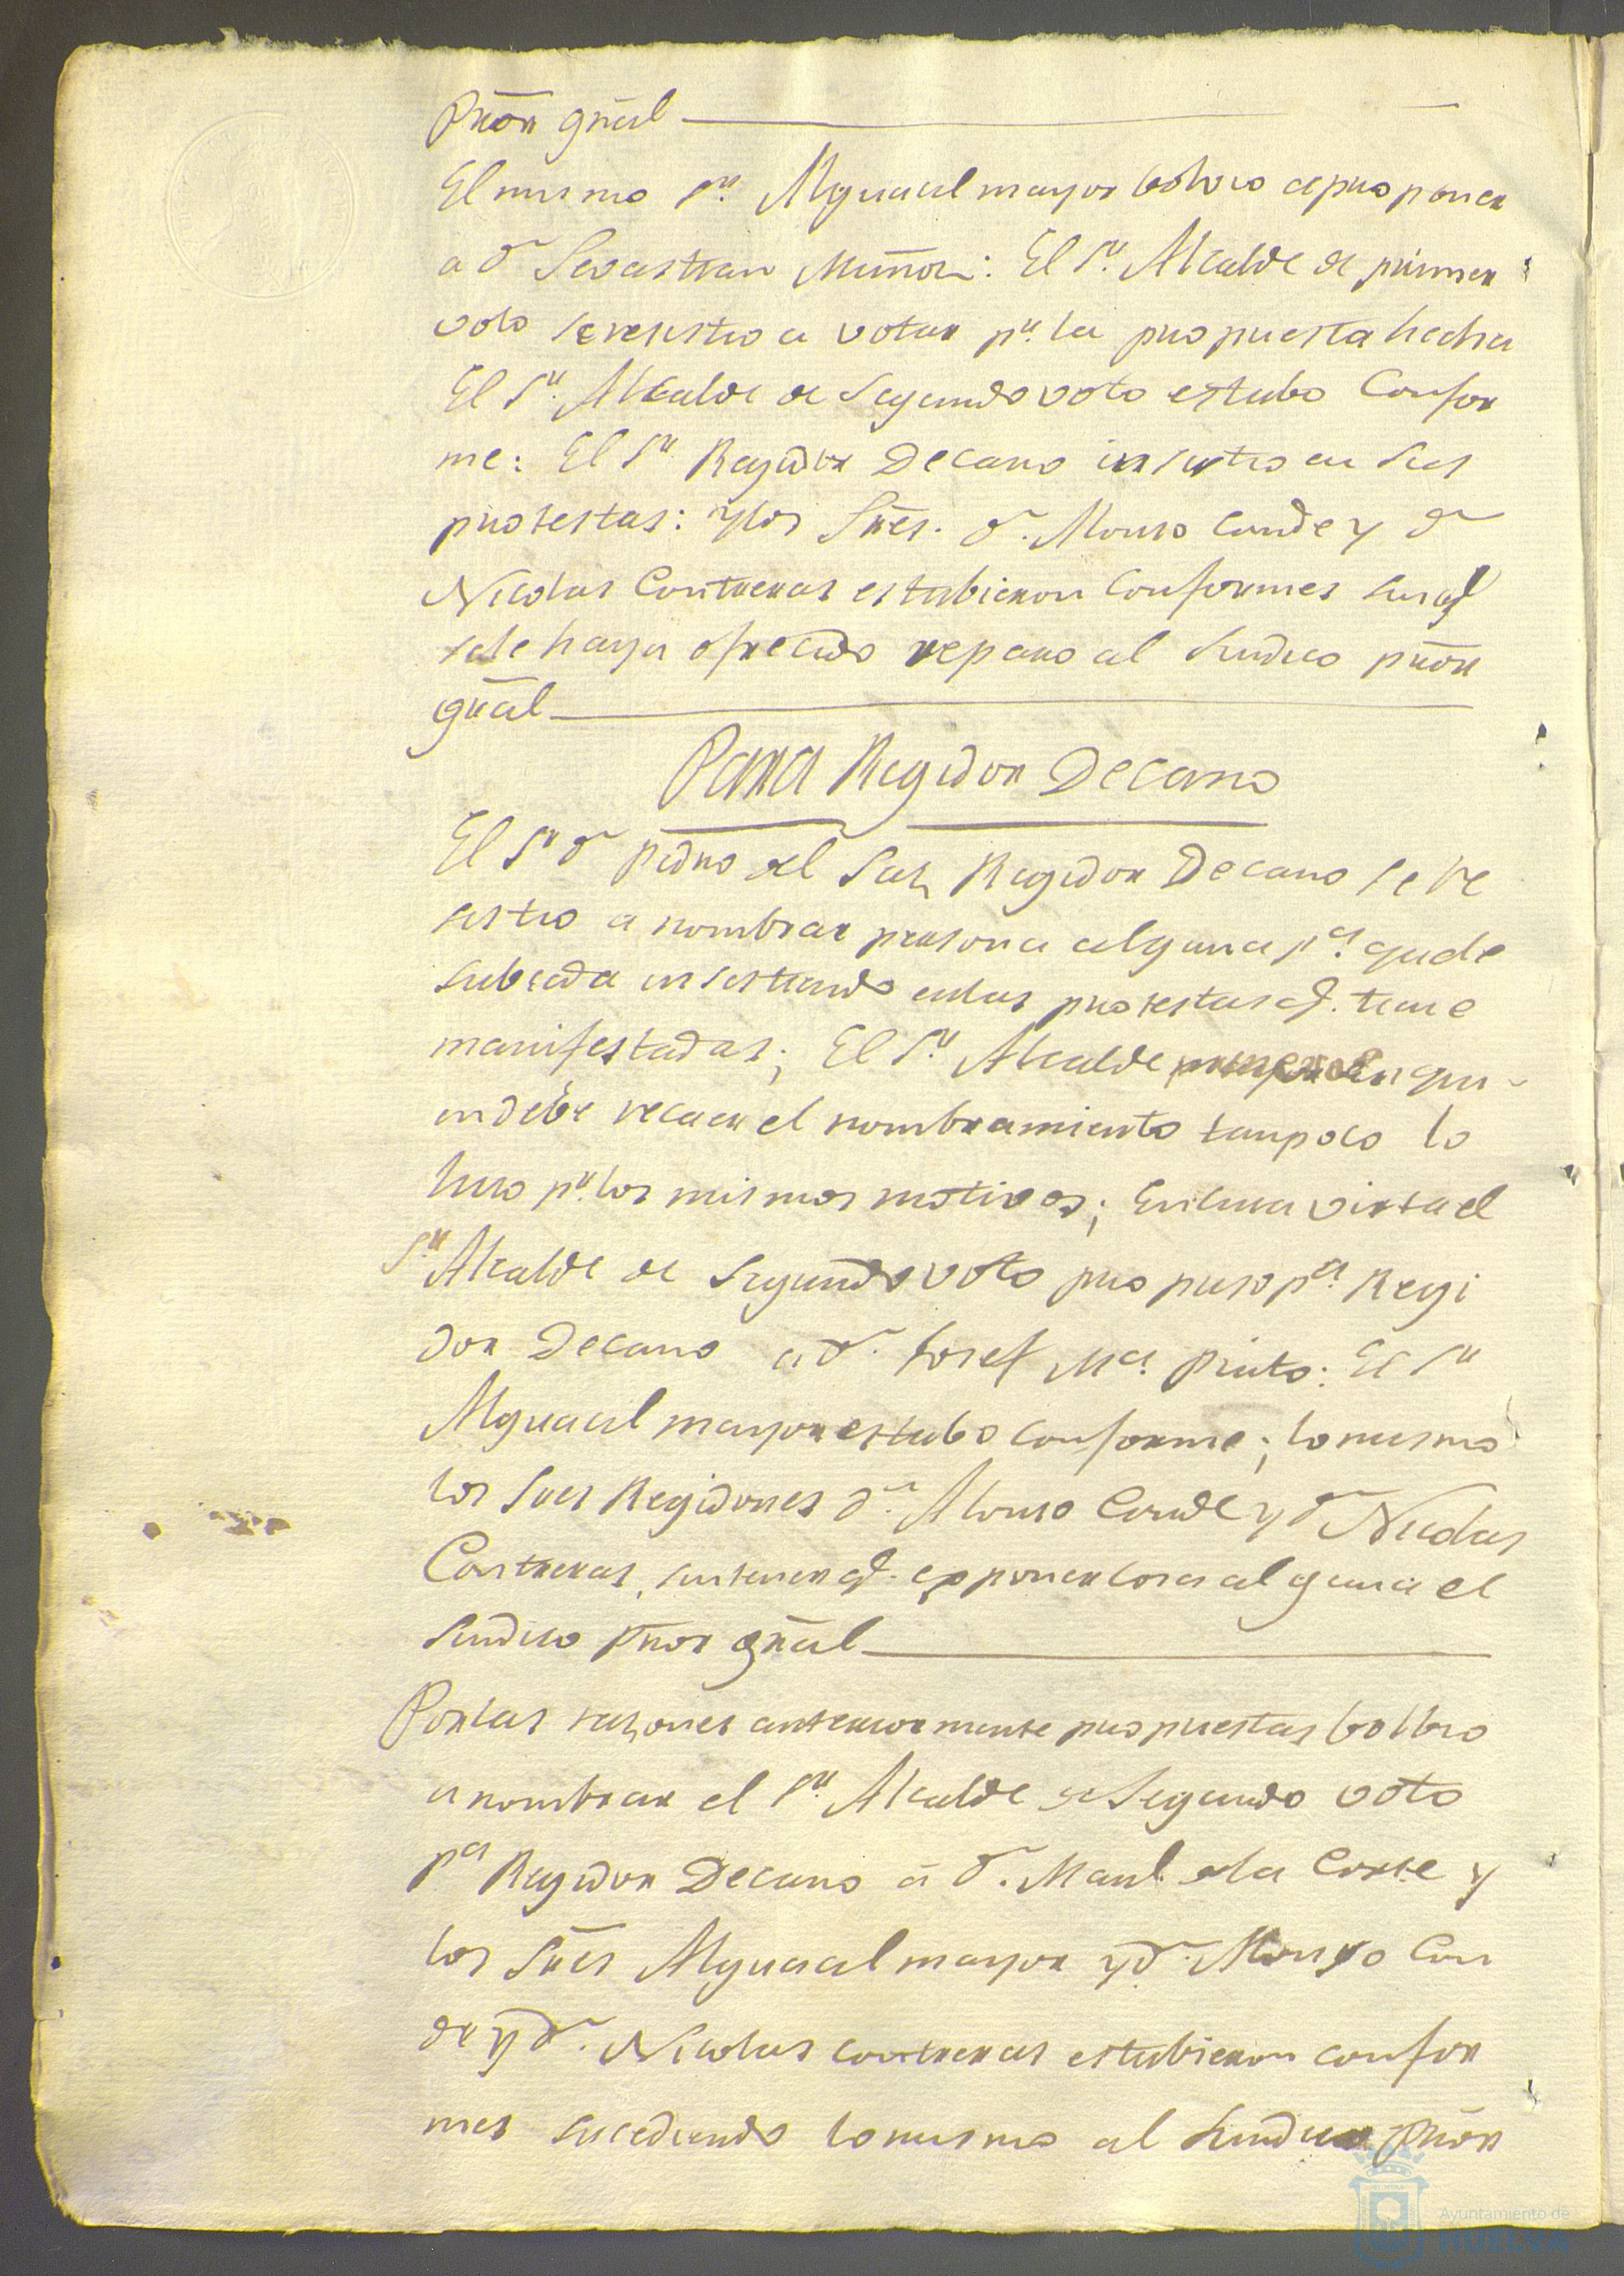 Prõr gñal
El mismo Sr. Alguacil mayor bolvio a proponer
a dn Sevastian Muñoz: El Sr. Alcalde de primer
voto se resistio a votar pr. la propuesta hecha
El Sr. Alcalde de Segundo voto estubo Confor
me: El Sr Regidor Decano insistio en sus
protestas: y los Sres. dn. Alonso Conde y dn
Nicolas Contreras estubieron Conformes sin q.
se le haya ofrecido reparo al Sindico prõr
gñal
Para Regidor Decano
El Sr dn Pedro del Saz Regidor Decano se re
sistio a nombrar persona alguna pa. que le
subceda insistiendo en las protestas q. tiene
manifestadas; El Sr. Alcalde en qui
en debe recaer el nombramiento tanpoco lo
hizo pr. los mismos motivos; En cuia virtu el
Sr. Alcalde de Segundo voto propuso pa. Regi
dor Decano a dn. Josef Ma. Pinto: El Sr
Alguacil mayor estubo conforme; lo mismo
los Sres Regidores dn. Alonso Conde y dn Nicolas
Contreras, sin tener q. exponer cosa alguna el
Sindico Prõr gñal
Por las razones anteriormente propuestas bolbio
a nombrar el Sr. Alcalde de Segundo voto
pa Regidor Decano á dn. Manl. de la Corte y
los Sres Alguacil mayor y dn. Alonso Con
de y dn. Nicolas contreras estubieron confor
mes sucediendo lo mismo al Sindico Prõr
Ayuntamiento de
HUELVA